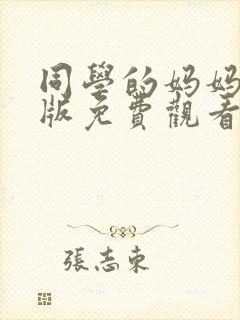 同學的妈妈
版免費觀看
張志東